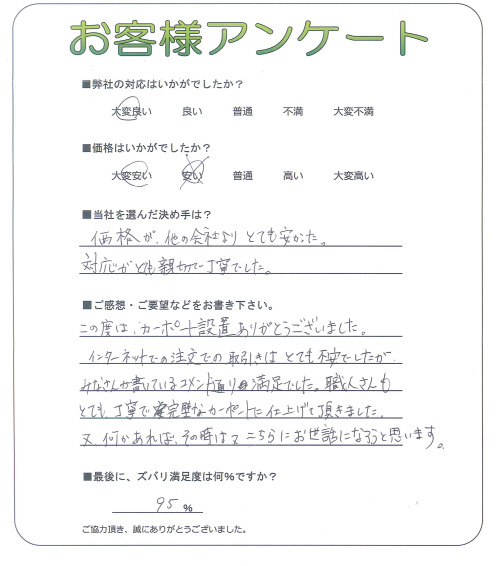 お客様アンケート
■弊社の対応はいかがでしたか?
大変良い 良い 普通 不満 大変不満
■価格はいかがでしたか?
大変安い 安い 普通 高い 大変高い
■当社を選んだ決め手は?
価格が、他の会社より とても安かった。
対応がとても親切で丁寧でした。
■ご感想・ご要望などをお書き下さい。
この度は、カーポート設置ありがとうございました。
インターネットでの注文での取引きは とても不安でしたが、
みなさんが書いているコメント通り満足でした。職人さんも
とても、丁寧で完璧なカーポートに仕上げて頂きました。
又、何かあれば、その時は こちらにお世話になろうと思います。
■最後に、ズバリ満足度は何%ですか?
95 %
ご協力頂き、誠にありがとうございました。